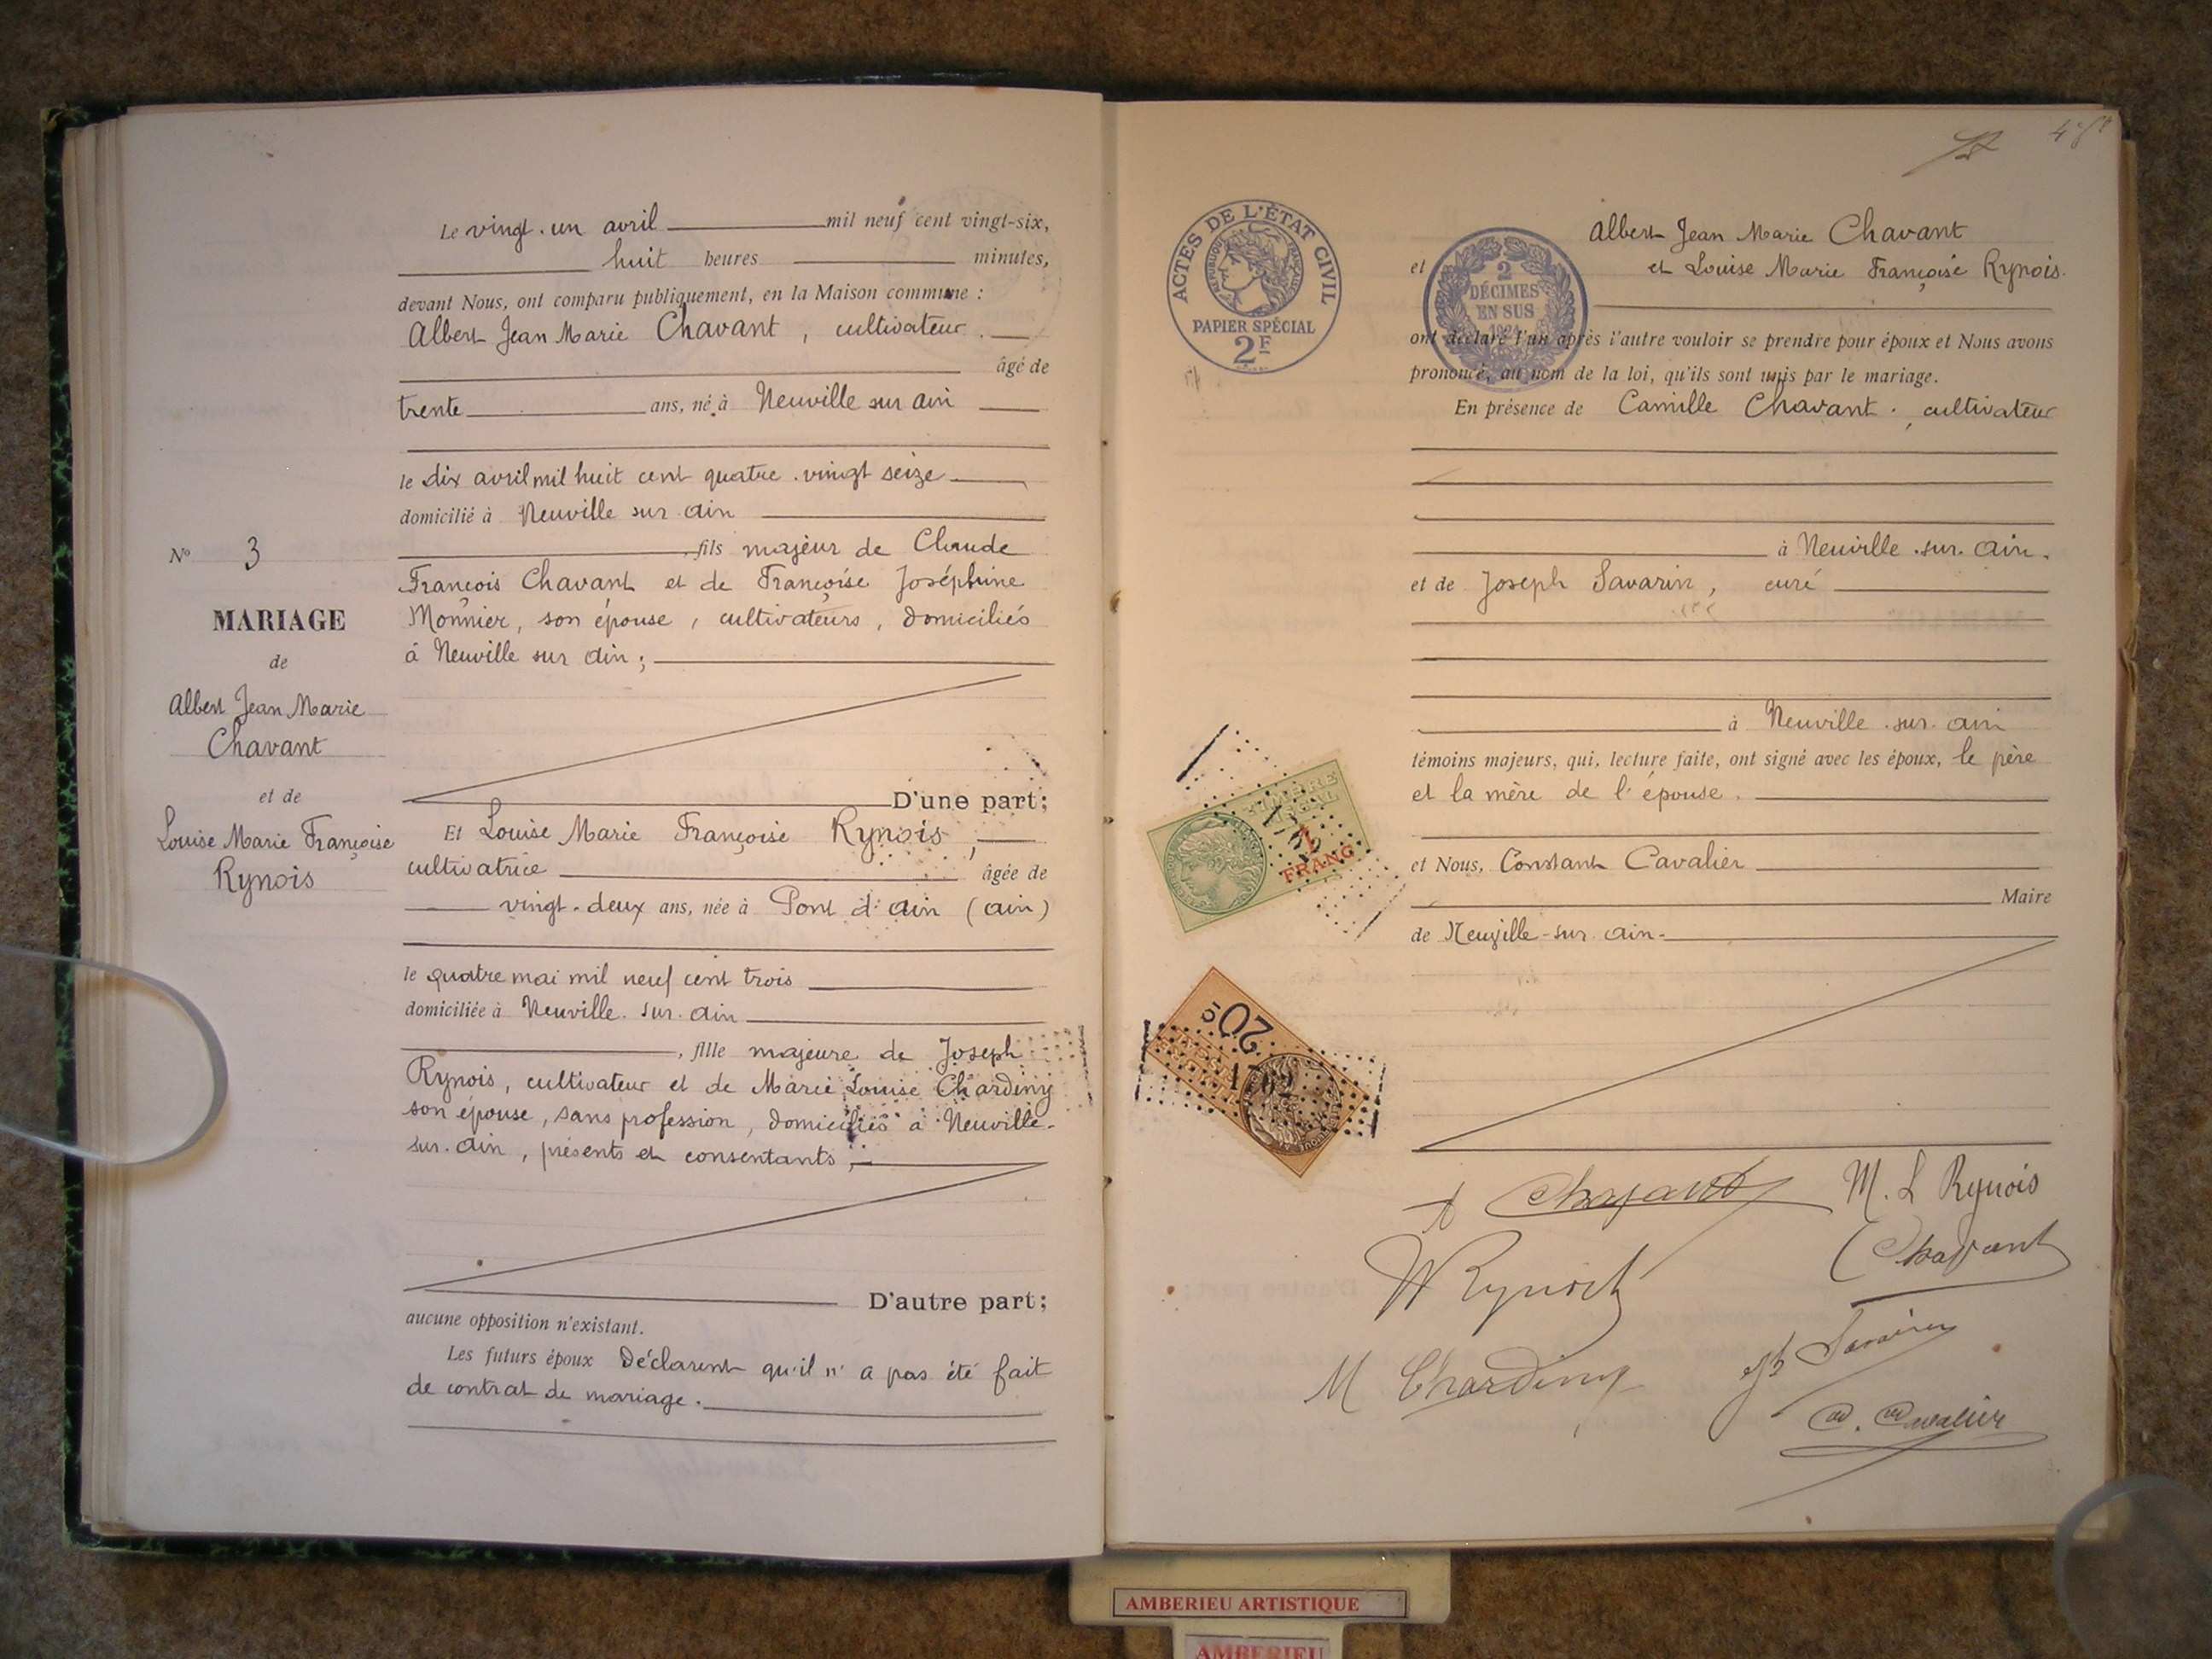 Le vingt-un avril mil neuf cent vingt-six,
huit heures minutes,
devant Nous, ont comparu publiquement, en la Maison commune :
Albert Jean Marie Chavant, cultivateur
âgé de
trente ans, né à Neuville sur ain
le dix avril mil huit cent quatre-vingt seize
domicilié à Neuville sur ain
, fils majeur de Claude
François Chavant et de Françoise Joséphine
Monnier, son épouse, cultivateurs, domiciliés
à Neuville sur ain ;
D'une part ;
Et Louise Marie Françoise Rynois,
cultivatrice âgée de
vingt-deux ans, née à Pont d'ain (ain)
le quatre mai mil neuf cent trois
domiciliée à Neuville-sur-ain
, fille majeure de Joseph
Rynois, cultivateur et de Marie Louise Chardiny
son épouse, sans profession, domiciliés à Neuville-
sur-ain, présents et consentants ;
D'autre part ;
aucune opposition n'existant.
Les futurs époux déclarent qu'il n'a pas été fait
de contrat de mariage.
No 3
MARIAGE
de
Albert Jean Marie
Chavant
et de
Louise Marie Françoise
Rynois
ACTES DE L'ÉTAT CIVIL
RÉPUBLIQUE FRANÇAISE
PAPIER SPÉCIAL
2F
2
DÉCIMES
EN SUS
1924
Albert Jean Marie Chavant
et et Louise Marie Françoise Rynois.
ont déclaré l'un après l'autre vouloir se prendre pour époux et Nous avons
prononcé, au nom de la loi, qu'ils sont unis par le mariage.
En présence de Camille Chavant, cultivateur
à Neuville-sur-ain.
et de Joseph Savarin, curé
à Neuville-sur-ain
témoins majeurs, qui, lecture faite, ont signé avec les époux, le père
et la mère de l'épouse.
et Nous, Constant Cavalier
Maire
de Neuville-sur-ain-
TIMBRE
FISCAL
1
FRANC
20c
A Chavant
M. L Rynois
Rynois
Chavant
M Chardiny
Jh Savarin
C. Cavalier
AMBERIEU ARTISTIQUE
AMBERIEU